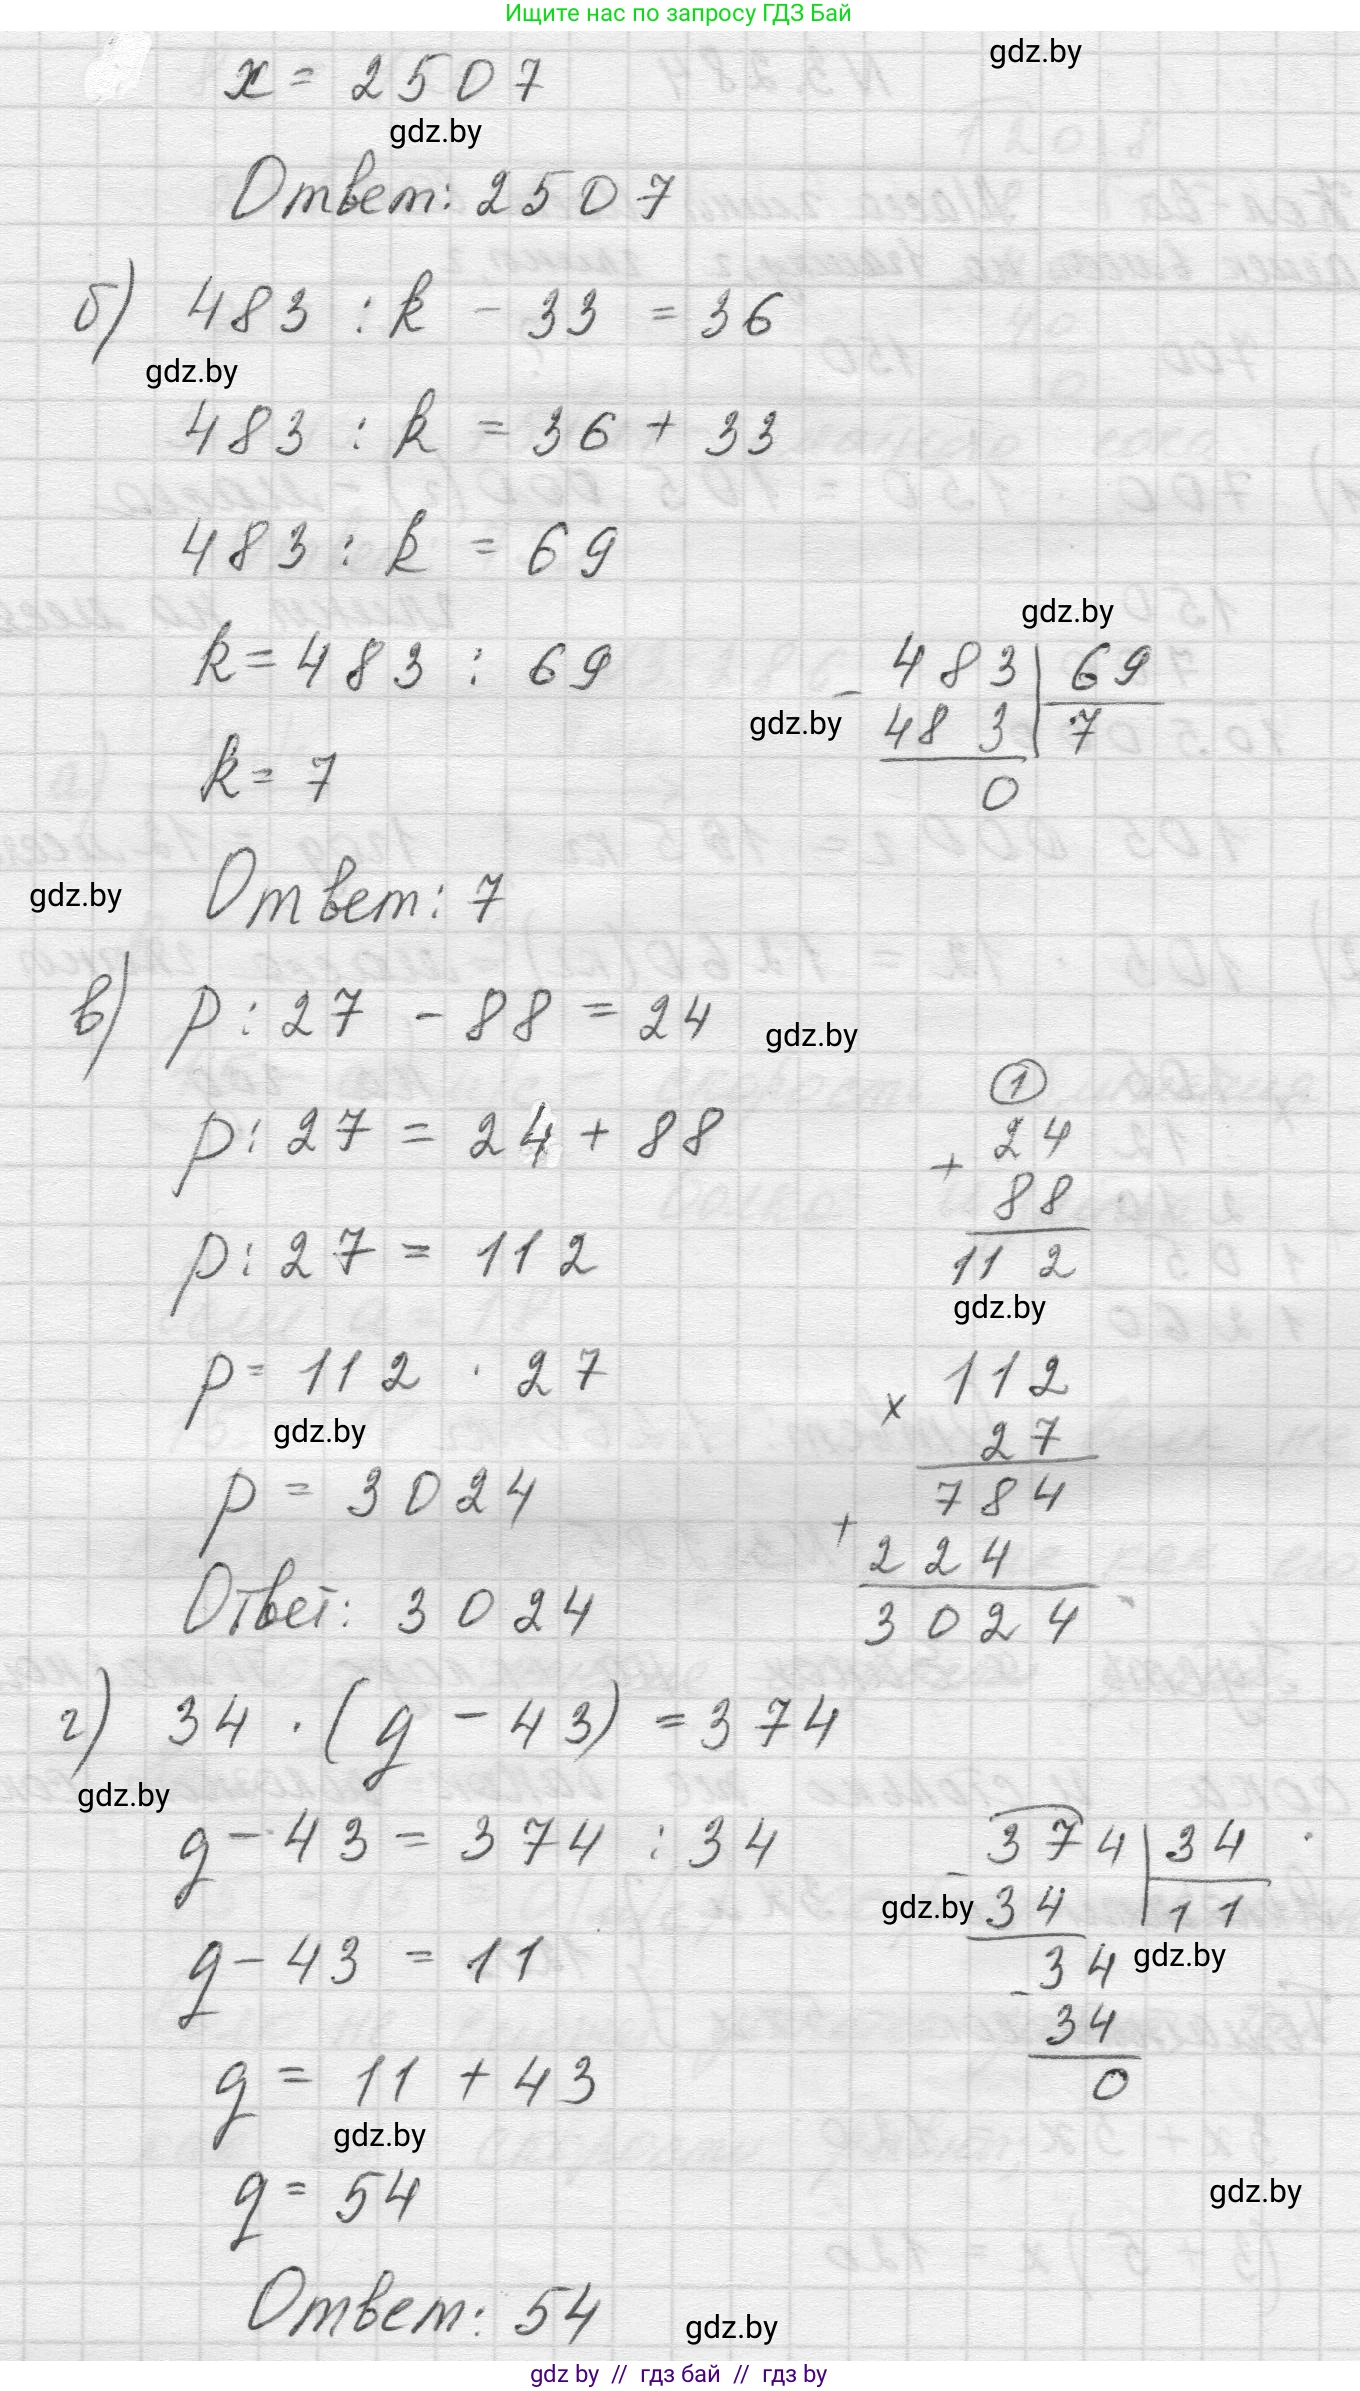 Ищите нас по запросу ГДЗ Бай
gdz.by
x = 2507
gdz.by
Ответ: 2507
б) 483 : k - 33 = 36
gdz.by
483 : k = 36 + 33
483 : k = 69
gdz.by
k = 483 : 69
- 483 | 69
gdz.by
483 7
k = 7
0
gdz.by
Ответ: 7
в) p : 27 - 88 = 24
gdz.by
1
p : 27 = 24 + 88
24
+
88
p : 27 = 112
112
gdz.by
p = 112 · 27
112
x
gdz.by
27
p = 3024
784
+
224
Ответ: 3024
3024
г) 34 · (g - 43) = 374
gdz.by
g - 43 = 374 : 34
- 374 | 34
gdz.by
34 11
g - 43 = 11
gdz.by
34
-
34
g = 11 + 43
0
gdz.by
g = 54
gdz.by
Ответ: 54
gdz.by
gdz by // гдз бай // гдз by